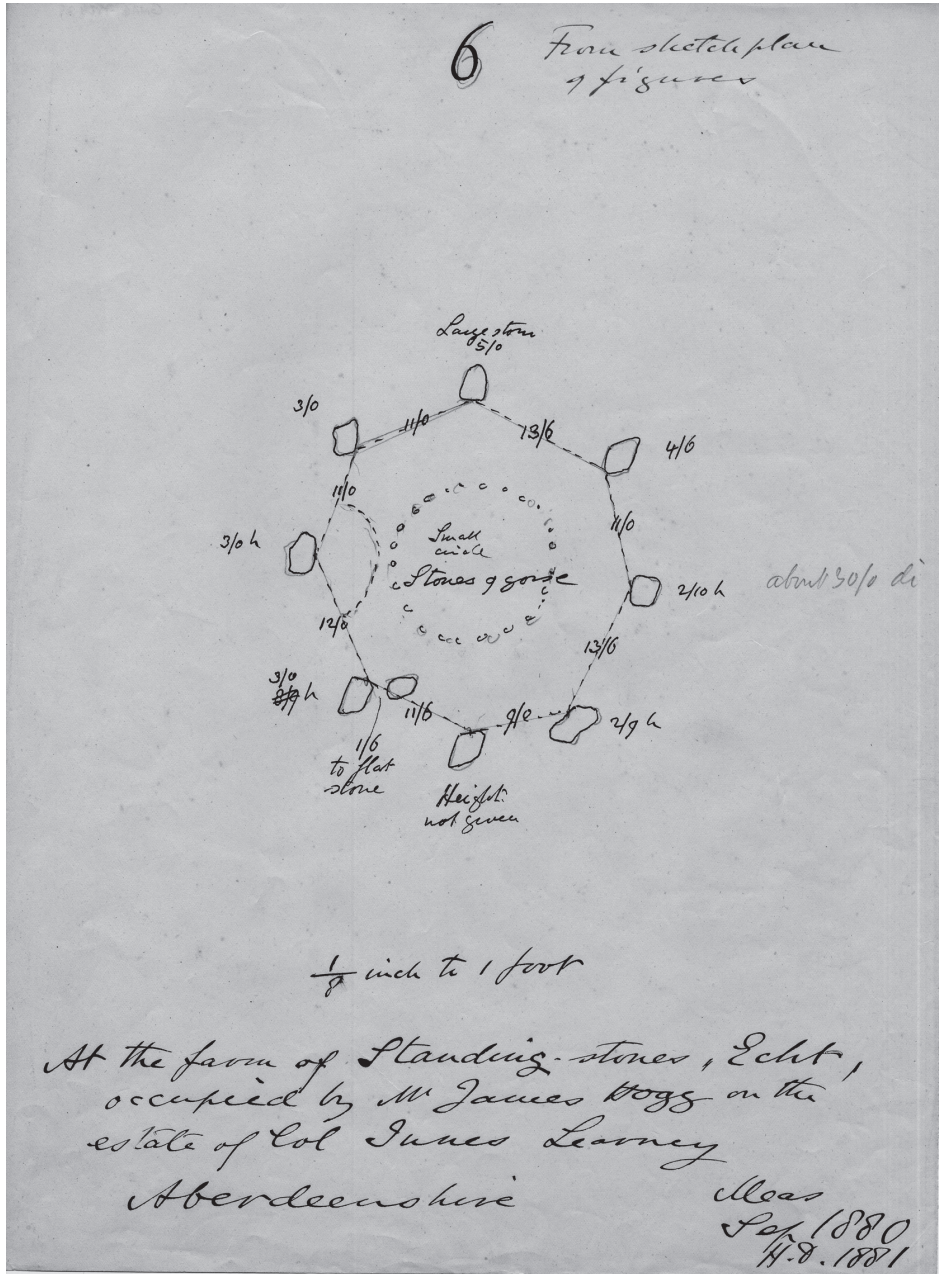 6
From sketch plan
& figures
Large stone
5/0
3/0
11/0
13/6
4/6
11/0
11/0
3/0 h
Small
circle
Stones & gorse
2/10 h
about 30/0 di
12/0
13/6
3/0
h
11/6
9/0
2/9 h
1/6
to flat
stone
Height
not given
1/8 inch to 1 foot
At the farm of Standing-stones, Echt,
occupied by Mr James Hogg on the
estate of Col Innes Learney
Aberdeenshire
Meas
Sep 1880
H.D. 1881